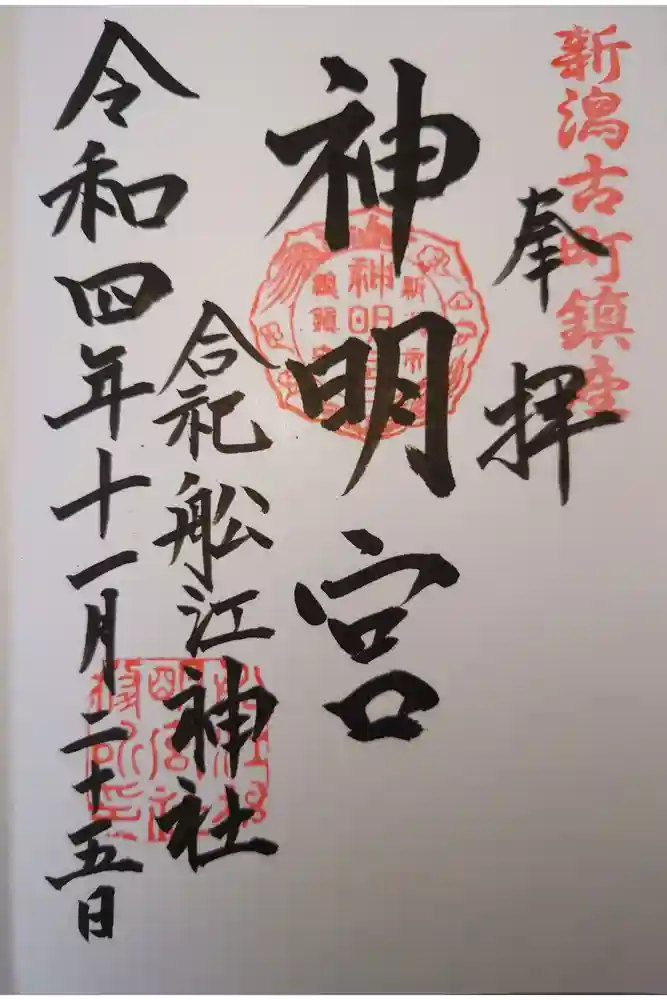 新潟古町鎮座
奉拝
神明宮
合祀船江神社
令和四年十一月二十五日